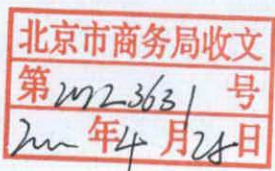 北京市商务局收文
第20223631号
年4月28日